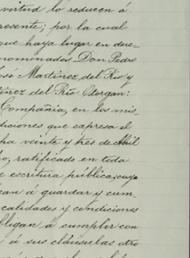 virtud lo reducen á
resente; por la cual
que haya lugar en dere-
nominados Don Pedro
José Martinez del Rio y
inez del Rio otorgan:
Compañia, en los mis-
diciones que expresa el
cha veinte y tres de Abril
lo, ratificado en toda
e escritura pública, cuyo
can á guardar y cum-
calidades y condiciones
bligan á cumplir con
á sus cláusulas otro